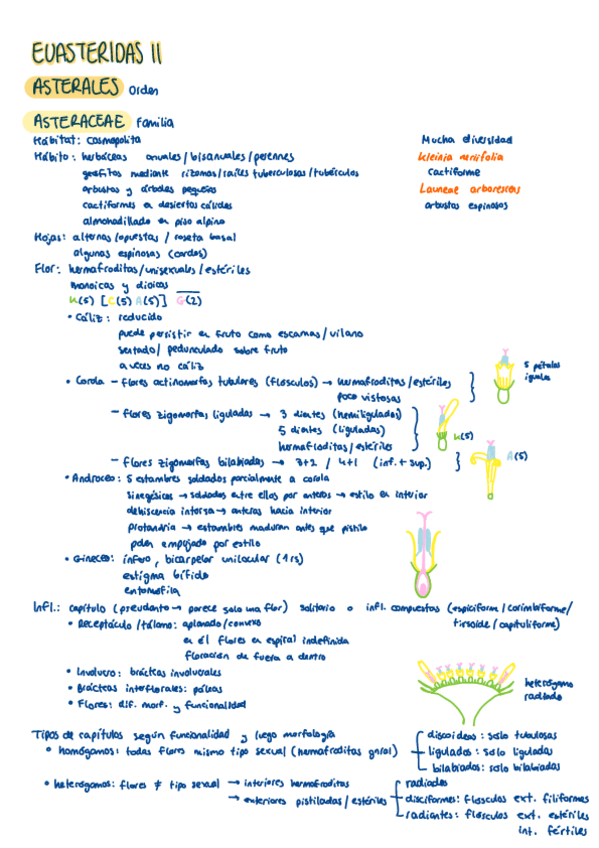 EUASTERIDAS II
ASTERALES Orden
ASTERACEAE Familia
Hábitat: cosmopolita
Mucha diversidad
Hábito: herbáceas anuales/bisanuales/perennes
Kleinia neriifolia
geófitos mediante rizomas/raíles tuberculosas/tubérculos
cactiforme
arbustos y árboles pequeños
Launeae arborescens
cactiformes en desiertos cálidos
arbustos espinosos
almohadillado en piso alpino
Hojas: alternas/opuestas / roseta basal
algunas espinosas (cardos)
Flor: hermafroditas/unisexuales/estériles
monoicas y dioicas
K(5) [C(5) A(5)] G(2)
• Cáliz: reducido
puede persistir en fruto como escamas/vilano
sentado/ pedunculado sobre fruto
a veces no cáliz
• Corola - flores actinomorfas tubulares (flósculos) → hermafroditas/estériles
poco vistosas
5 pétalos
iguales
- flores zigomorfas liguladas → 3 dientes (hemiligulados)
5 dientes (liguladas)
hermafroditas/estériles
K(5)
- flores zigomorfas bilabiadas → 3+2 / 4+1 (inf. + sup.)
A(5)
• Androceo: 5 estambres soldados parcialmente a corola
sinegésicos → soldados entre ellos por anteras → estilo en interior
dehiscencia intorsa → anteras hacia interior
protandria → estambres maduran antes que pistilo
polen empujado por estilo
• Gineceo: ínfero, bicarpelar unilocular (1 rs)
estigma bífido
entomofila
Infl.: capítulo (pseudanto → parece solo una flor) solitario o infl. compuestas (espiciforme/corimbiforme/
tirsoide/capituliforme)
• Receptáculo/tálamo: aplanado/convexo
en él flores en espiral indefinida
floración de fuera a dentro
• Involucro: brácteas involucrales
• Brácteas interflorales: páleas
• Flores: dif. morf. y funcionalidad
heterógamo
radiado
Tipos de capítulos según funcionalidad y luego morfología
• homógamos: todas flores mismo tipo sexual (hemafroditas gnral)
discoideas: solo tubulosas
ligulados: solo liguladas
bilabiados: solo bilabiadas
• heterógamos: flores ≠ tipo sexual → interiores hermafroditas
→ exteriores pistiladas/estériles
radiados
disciformes: flósculos ext. filiformes
radiantes: flósculos ext. estériles
int. fértiles